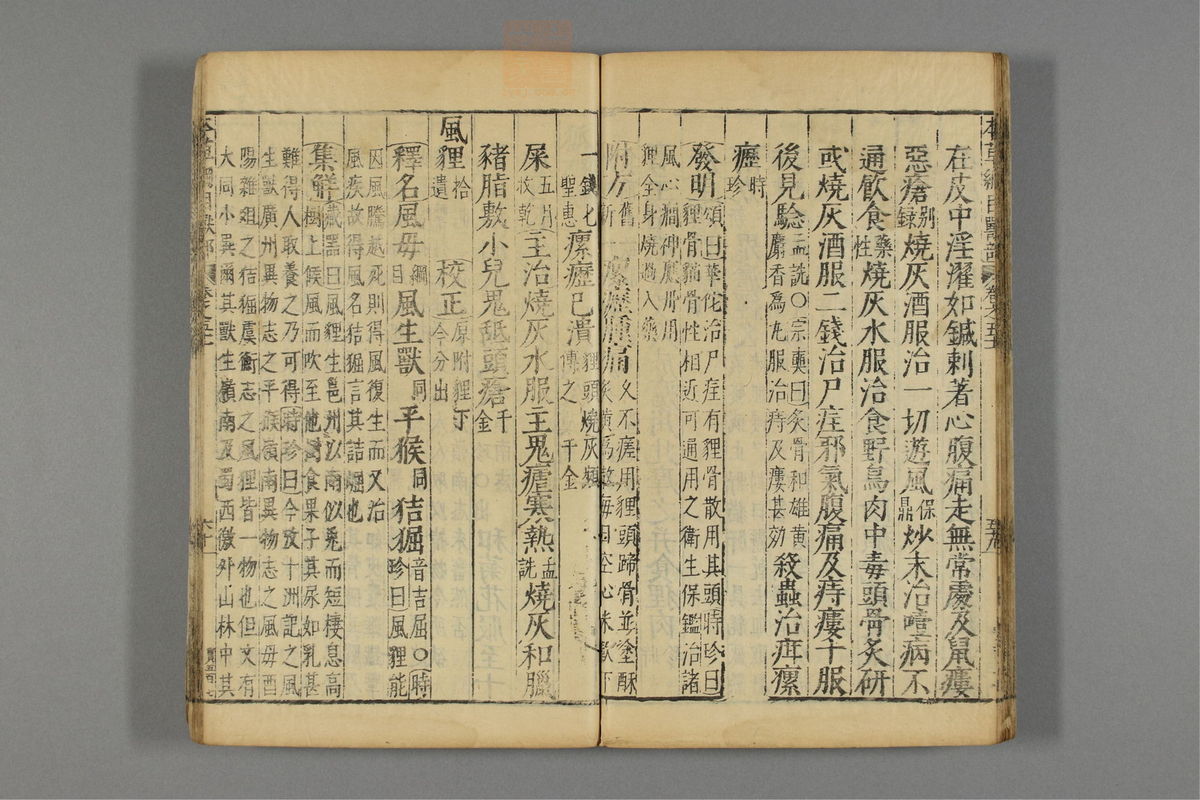 在皮中淫濯如鍼刺著心腹痛走無常處及鼠瘻
惡瘡别録燒灰酒服治一切遊風保鼎炒末治噎病不
通飲食藥性燒灰水服治食野鳥肉中毒頭骨炙研
或燒灰酒服二錢治尸疰邪氣腹痛及痔瘻十服
後見驗孟詵○宗奭曰炙骨和雄黄
麝香爲丸服治痔及瘻甚効殺蟲治疳瘰
癧時珍
發明頌曰華佗治尸疰有貍骨散用其頭時珍曰
貍骨猫骨性相近可通用之衛生保鑑治諸
風心癇神應丹用
貍全身燒過入藥
附方舊一新一瘰癧腫痛久不瘥用貍頭蹄骨並塗酥
炙黄爲散每日空心米飲下
一錢匕
聖惠瘰癧已潰貍頭燒灰頻
傅之千金
屎五月收乾主治燒灰水服主鬼瘧寒熱孟詵燒灰和臘
豬脂敷小兒鬼䑛頭瘡千金
風貍拾遺校正原附貍下
今分出
釋名風母綱目風生獸同平猴同狤𤟎音吉屈○時
珍曰風貍能
因風騰越死則得風復生而又治
風疾故得風名狤𤟎言其詰崛也
集解藏器曰風貍生邕州以南似兎而短棲息高
樹上候風而吹至他樹食果子其尿如乳甚
難得人取養之乃可得時珍曰今攷十洲記之風
生獸南州異物志之平猴嶺南異物志之風母酉
陽雜俎之狤𤟎虞衡志之風貍皆一物也但文有
大同小異爾其獸生嶺南及蜀西徼外山林中其